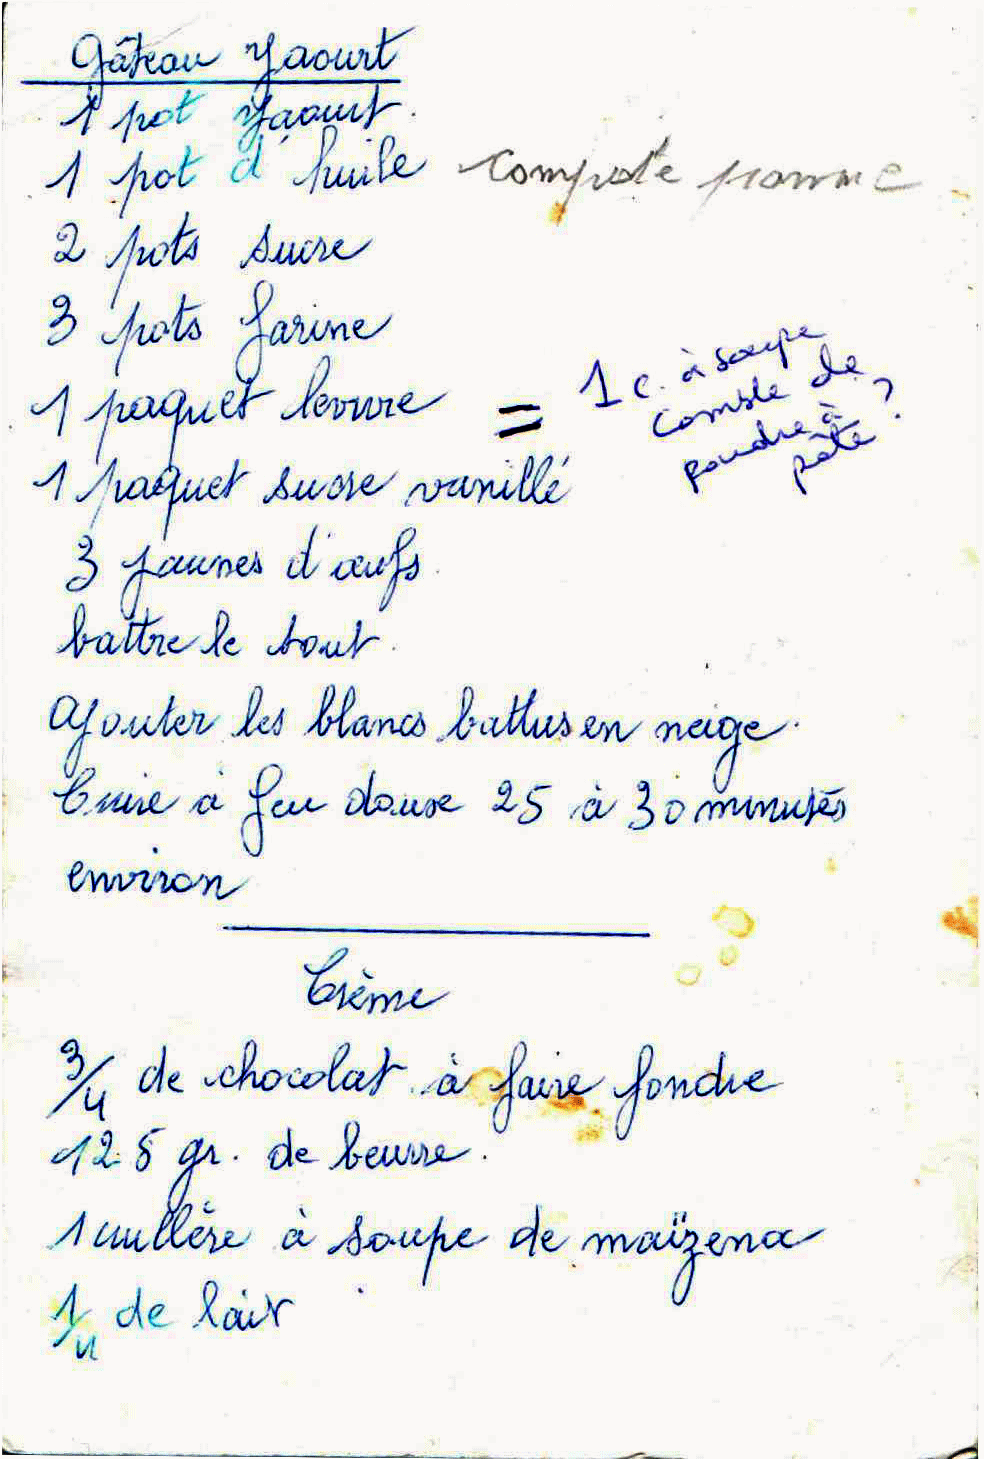 Gâteau Yaourt
1 pot Yaourt.
1 pot d'huile compote pomme
2 pots sucre
3 pots farine
1 paquet levure = 1 c. à soupe
comble de
poudre à
pâte ?
1 paquet sucre vanillé
3 jaunes d'œufs.
battre le tout.
Ajouter les blancs battus en neige.
Cuire à feu doux 25 à 30 minutes
environ
Crème
3/4 de chocolat à faire fondre
125 gr. de beurre.
1 cuillère à soupe de maïzena
1/4 de lait